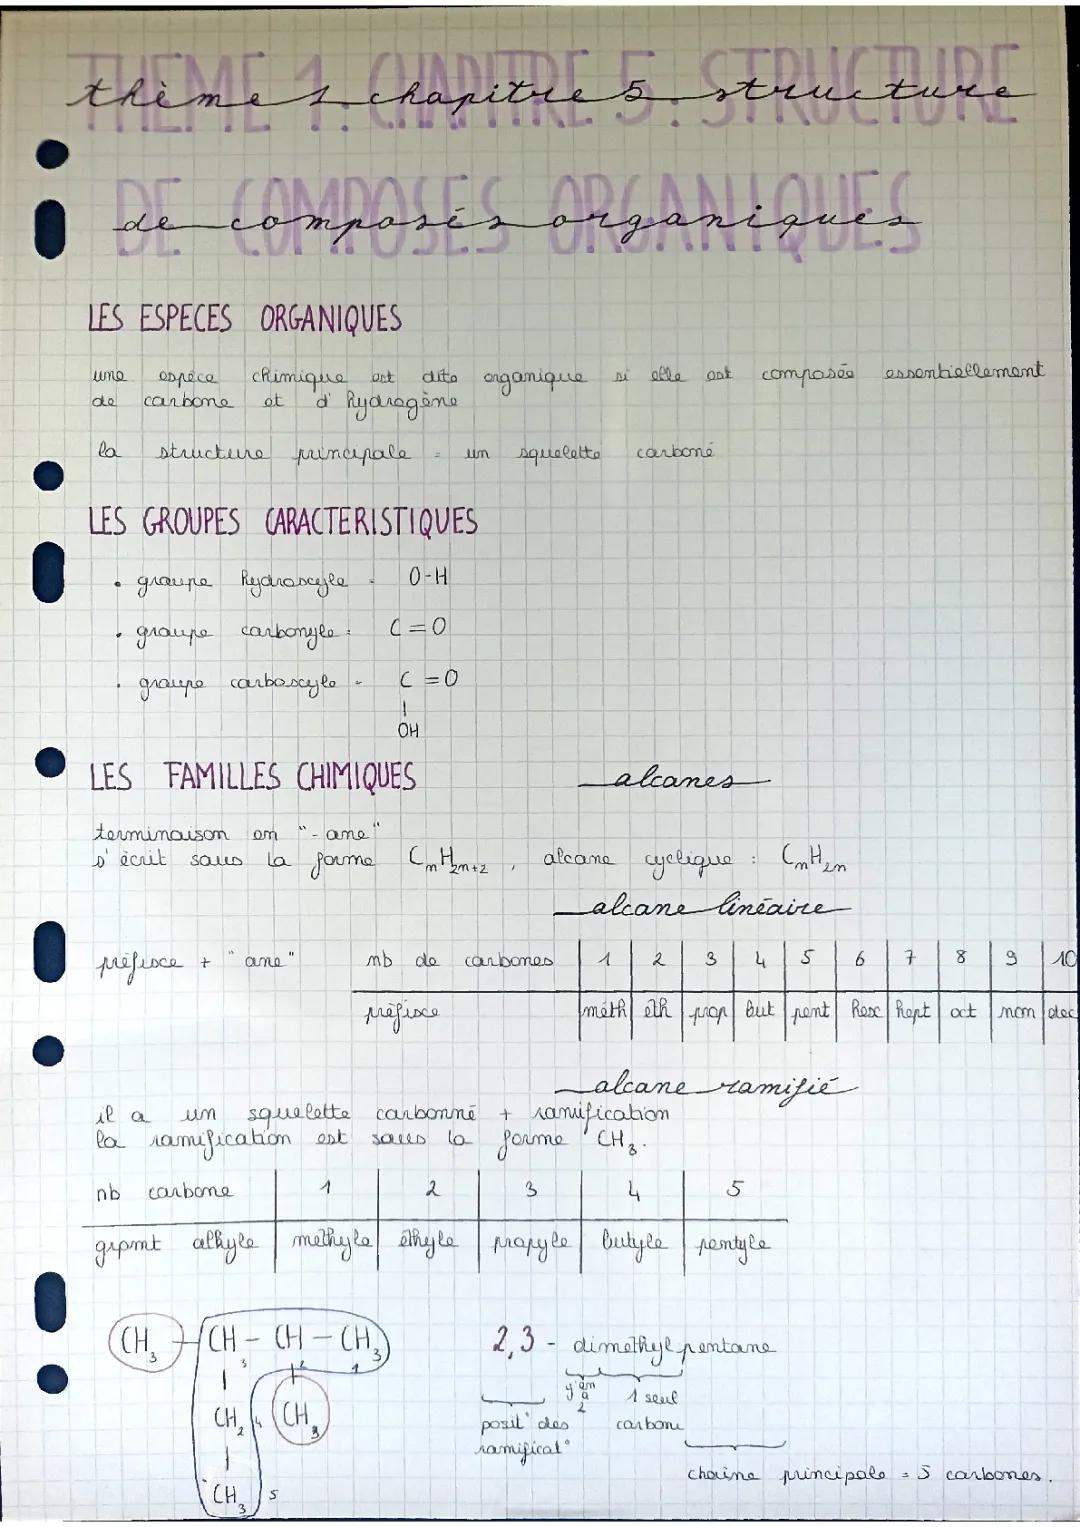 THEME 1. CHAPITRE 5. STRUCTURE
thème 1. chapitre 5. structure
DE COMPOSÉS ORGANIQUES
de composés organiques
LES ESPECES ORGANIQUES
une espèce chimique est dite organique si elle est composée essentiellement
de carbone et d'hydrogène
la structure principale = un squelette carboné
LES GROUPES CARACTERISTIQUES
• groupe hydroxyle = O-H
• groupe carbonyle = C=O
• groupe carboxyle = C=O
|
OH
LES FAMILLES CHIMIQUES
alcanes
terminaison en "-ane"
s'écrit sous la forme CnH2n+2, alcane cyclique : CnH2n
alcane linéaire
préfixe + "ane"
nb de carbones 1 2 3 4 5 6 7 8 9 10
préfixe méth éth prop but pent hex hept oct non dec
alcane ramifié
il a un squelette carbonné + ramification
la ramification est sous la forme CH3.
nb carbone 1 2 3 4 5
grpmt alkyle méthyle éthyle propyle butyle pentyle
CH3 - CH - CH - CH3
3 2 1
CH2 4 CH3
CH3 5
2,3 - diméthylpentane
y'en a 2
1 seul carbone
posit° des ramificat°
chaîne principale = 5 carbones.